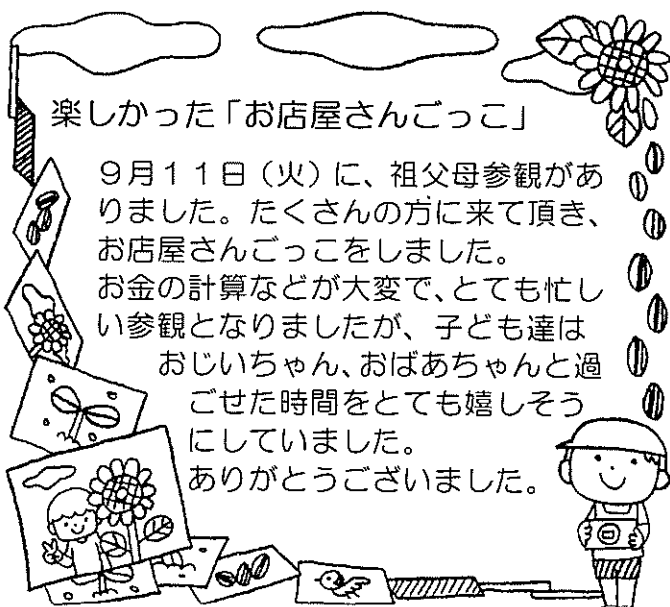 楽しかった「お店屋さんごっこ」
９月１１日（火）に、祖父母参観があ
りました。たくさんの方に来て頂き、
お店屋さんごっこをしました。
お金の計算などが大変で、とても忙し
い参観となりましたが、子ども達は
おじいちゃん、おばあちゃんと過
ごせた時間をとても嬉しそう
にしていました。
ありがとうございました。